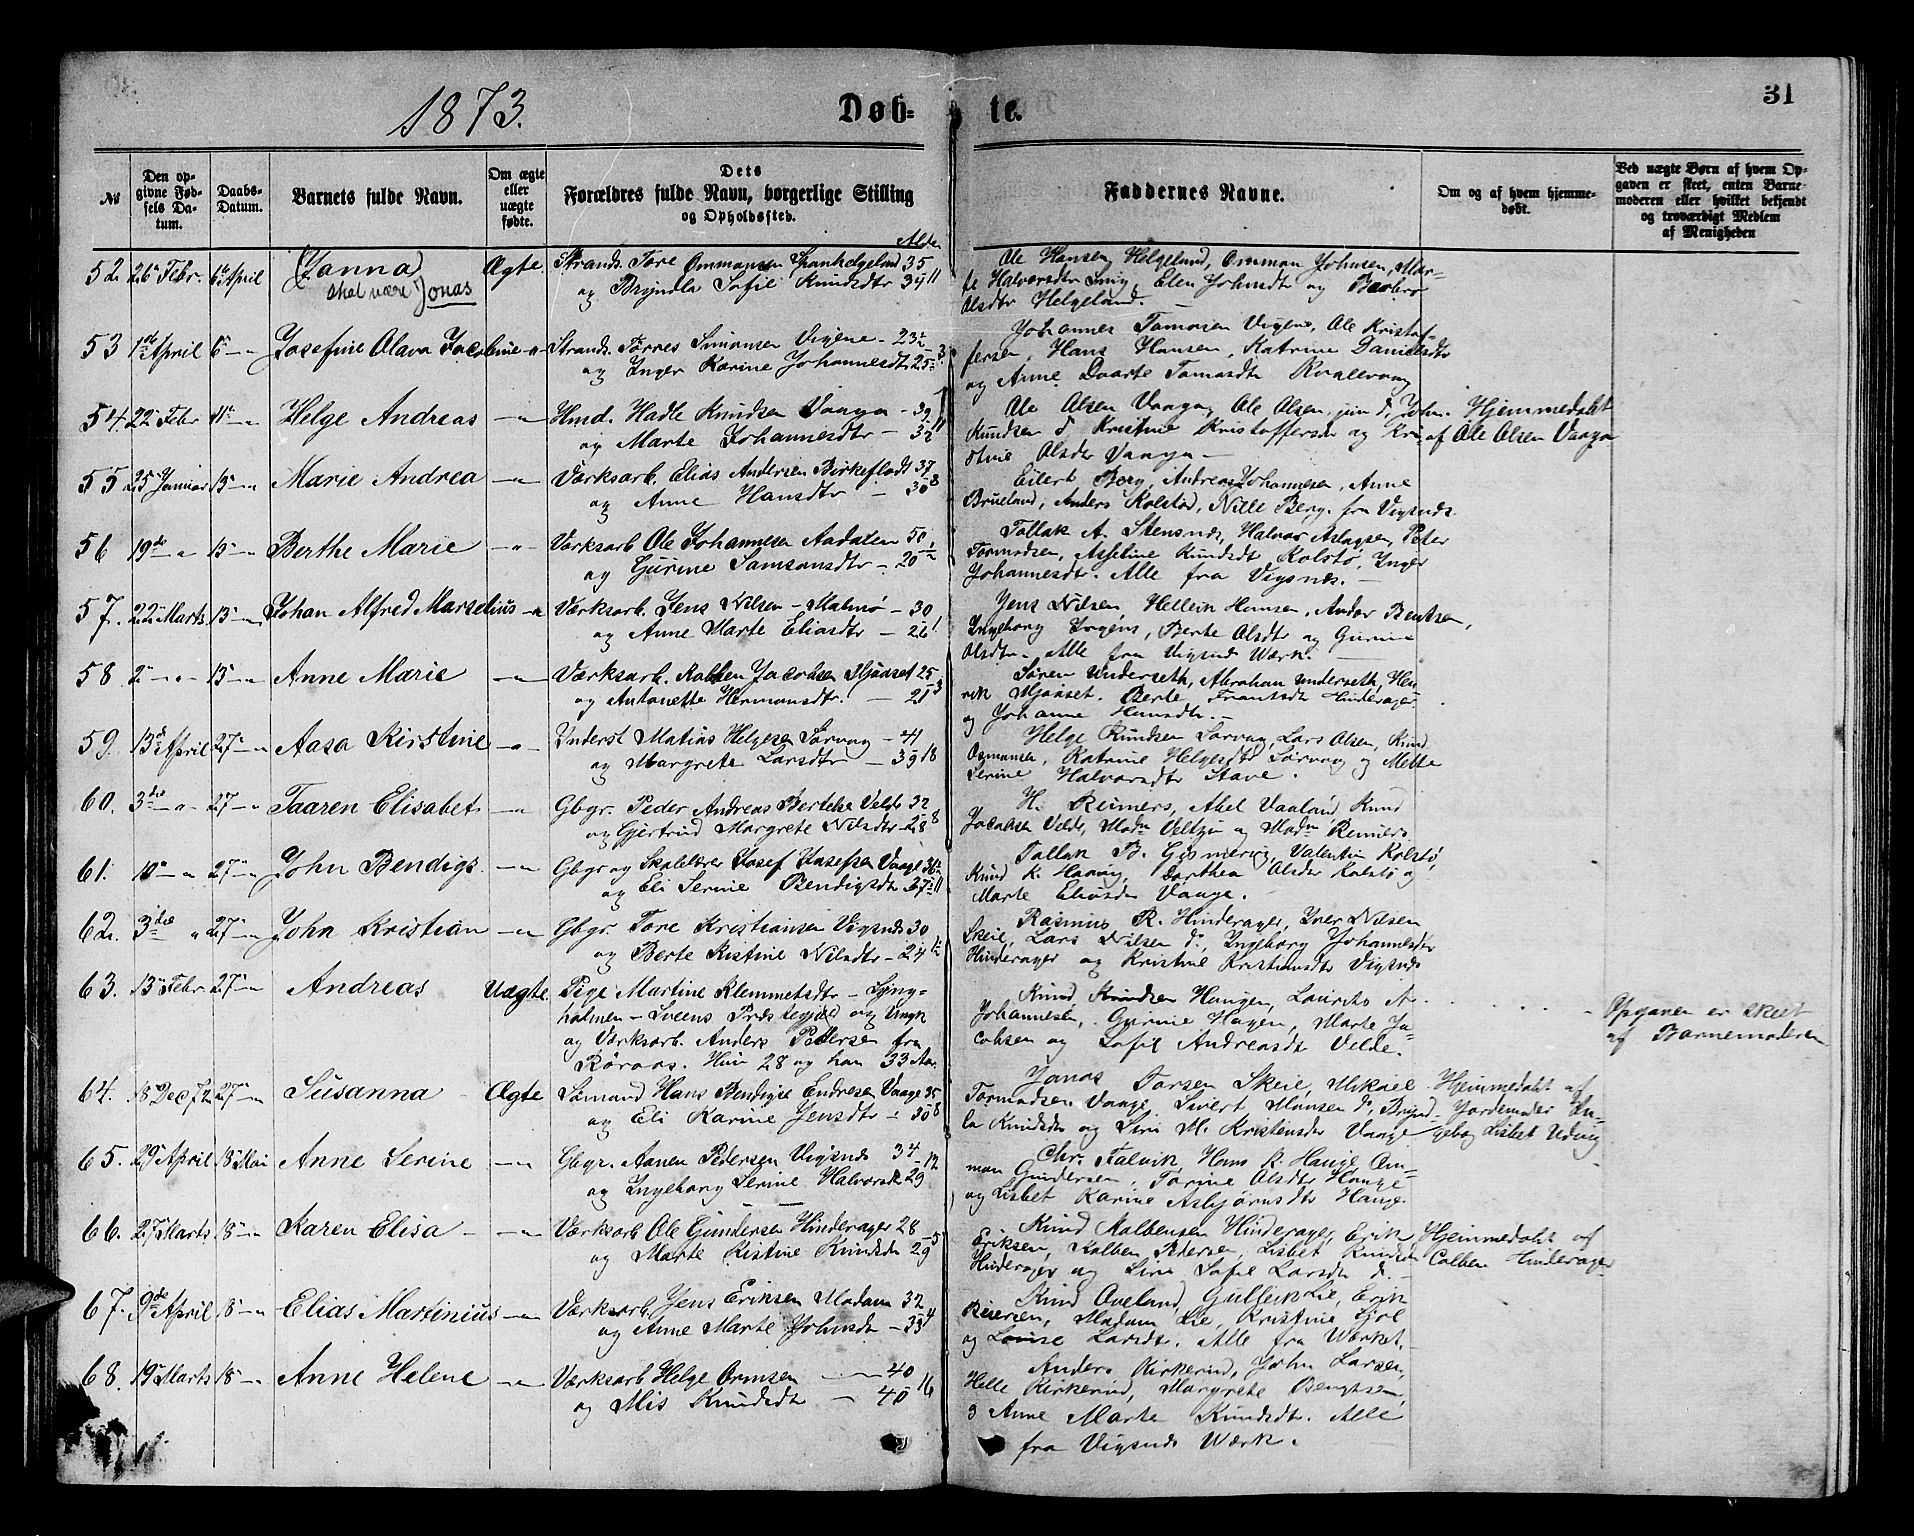 1873.
Døb-
te.
31
№
Den opgivne Fødsels Datum.
Daabs-Datum.
Barnets fulde Navn.
Om ægte eller uægte fødte.
Dets Forældres fulde Navn, borgerlige Stilling og Opholdssted.
Alder
Faddernes Navne.
Om og af hvem hjemmedøbt.
Ved uægte Børn af hvem Opgaven er skeet, enten Barnemoderen eller hvilket bekjendt og troværdigt Medlem af Menigheden
52 26 Febr. 6 April (Janna) Ægte Strands. Tore Ommonsen 35
skal være Jonas og Bryndla Sofie Knudsdtr 34 11
Ole Hansen Helgeland, Omman Johnsen, Mar-
te Halvorsdtr , Elen Johnsdtr og Barbro
Olsdtr Helgeland. —
53 1ste April 6 — " Josefine Olava Jacobine — " Strands. Tørres Simonsen Vigene — 23
og Inger Karine Johannesdtr 25 3
Johannes Tamosen Vigene, Ole Kristof-
fersen, Hans Hansen, Katrine Danielsdtr
og Anne Doarte Tamosdtr Kvalevaag
54 22 Febr 11 — " Helge Andreas — " Hmd. Hadle Knudsen Vaaga — 39
og Marte Johannesdtr — 32 11
Ole Olsen Vaaga, Ole Olsen, jun d, John Hjemmedøbt
Knudsen d Kristine Kristoffersdr og Kri- af Ole Olsen Vaaga
stine Olsdtr Vaaga —
55 25 Januar 13 — " Marie Andrea — " Værksarb. Elias Andersen Birkeflodt 37
og Anne Hansdtr — 30 8
Eilert Berg, Andreas Johannesen, Anne
Brueland, Anders Kolstød, Nille Berg. fra Vigsnæs.
56 19de — " 13 — " Berthe Marie — " Værksarb Ole Johannesen Aadalen 50
og Gurine Samsonsdtr — 20
Tollak A. Stensnæs, Halvor Aslagsen, Peter
Tormodsen, Asseline Knudsdt Kolstø, Inger
Johannesdtr. Alle fra Vigsnæs. —
57. 22 Marts 13 — " Johan Alfred Marselius — " Værksarb. Jens Nilsen — Malmø — 30
og Anne Marte Eliasdtr — 26 1
Jens Nilsen, Hellein Hansen, Andor Bentsen,
Ingeborg , Berte Olsdtr og Gurine
Olsdtr. Alle fra Vigsnæs Værk. —
58 2 — " 13 — " Anne Marie — " Værksarb. Kolben Jacobsen Mjaaset 25
og Antonette Hermansdtr. — 21 3
Søren Underseth, Abraham Underseth, Hen-
rik Mjaaset. Berte Frantsdt Hinderager
og Johanne Hansdtr. —
59. 13de April 27 — " Aasa Kirstine — " Inderst Matias Helgesen Sørvaag — 41
og Margrete Larsdtr — 39 18
Helge Knudsen Sørvaag, Lars Olsen, Knud
Osmonsen, Katrine Helgesdtr Sørvaag og Mette
Serine Halvorsdtr Stave.
60. 3die — " 27 — " Taaren Elisabet — " Gbgr. Peder Andreas Bertelse Velde 32
og Gjertrud Margrete Nilsdtr — 28 8
H. Reimers, Abel Vaaland, Knud
Jacobsen Velde, Madm Veltzin og Madm Reimers.
61. 10 — " 27 — " John Bendigs. — " Gbgr og Skolelærer Josef Josefsen Vaage 36
og Eli Serine Bendigsdtr 37 11
Tollak B. Gismervig, Valentin Kolstø,
Knud K. Havvig, Dorthea Olsdr Kolstø og
Marte Eliasdtr Vaage.
62. 3die " 27 — " John Kristian — " Gbgr. Tore Kristiansen Vigsnæs 30
og Berte Kistine Nilsdtr — 24
Rasmus R. Hinderager, Iver Nilsen
Skeie, Lars Nilsen d, Ingeborg Johannesdtr
Hinderager og Kristine Kristiansdtr Vigsnæs
63. 13 Febr 27 — " Andreas Uægte. Pige Martine Klemmetsdtr — Lyng-
holmen — Sveens Præstegjæld og Ungk
og Værksarb. Anders Pedersen fra
Röraas. Hun 28 og han 33 Aar.
Knud Knudsen Haugen, Laurits A.
Johannesen, Gurine Hagen, Marte Ja-
cobsen og Sofie Andreasdtr Velde.
Opgaven er skeet
af Barnemoderen
64. 18 Dec 72 27 — " Susanna Ægte Sömand Hans Bendigse Endresen Vaage 35
og Eli Karine Jensdtr — 30 8
Jonas Torsen Skeie, Mikael Hjemmedøbt af
Tormodsen Vaage, Sivert Monsen d, Brynd- Jordemoder In-
la Knudsdr og Siri M. Kristensdr Vaage geborg Lisbet Udvig
65. 29 April 18 Mai Anne Serine — " Gbgr. Aanen Pedersen Vigsnæs 34
og Ingeborg Serine Halvorsdt 29 12
Chr. Falvik, Hans K. Hauge Om-
mon Gundersen, Torine Olsdtr Hauge
og Lisbet Karine Asbjörnsdtr Hauge.
66. 27 Marts 18 — " Karen Elisa — " Værksarb Ole Gundersen Hinderager 28
og Marte Kistine Knudsdr 29 5
Knud Kolbensen Hinderager, Erik Hjemmedøbt af
Eriksen, Kolben Pedersen, Lisbet Knudsdtr Colben Hinderager
Hinderager og Siri Sofie Larsdtr d. —
67. 9de April 18 — " Elias Martinius — " Værksarb. Jens Eriksen Modum 32
og Anne Marte Johnsdtr — 33 4
Knud Aveland, Gullek Lie, Erik
Beiersen, Madam Lie, Kristine Gjøl
og Louise Larsdtr. Alle fra Værket.
68. 19 Marts 18 — " Anne Helene — " Værksarb Helge Ormsen — 40
og Mis Knudsdtr — 40 16
Anders Kirkerud, John Larsen,
Helle Kirkerud, Margrete Bengtsen,
Anne Marte Knudsdtr. Alle
fra Vigsnæs Værk.